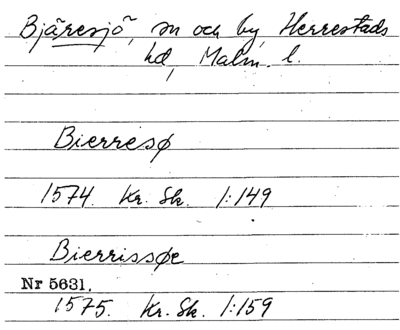 Bjäresjö, sn och by, Herrestads
hd, Malm. l.
Bierresø
1574. Kr. Sk. 1:149
Bierrissøe
Nr 5631.
1575. Kr. Sk. 1:159